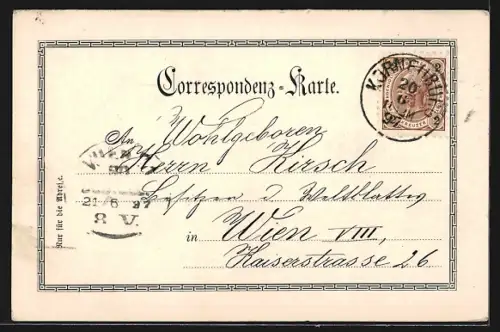 Correspondenz-Karte.
KORNEUBURG
20
6
97
An Wohlgeboren
Herrn Hirsch
Besitzer d. Weltblattes
in Wien VIII,
Kaiserstrasse 26
WIEN
21/6 97
8 V.
Nur für die Adresse.